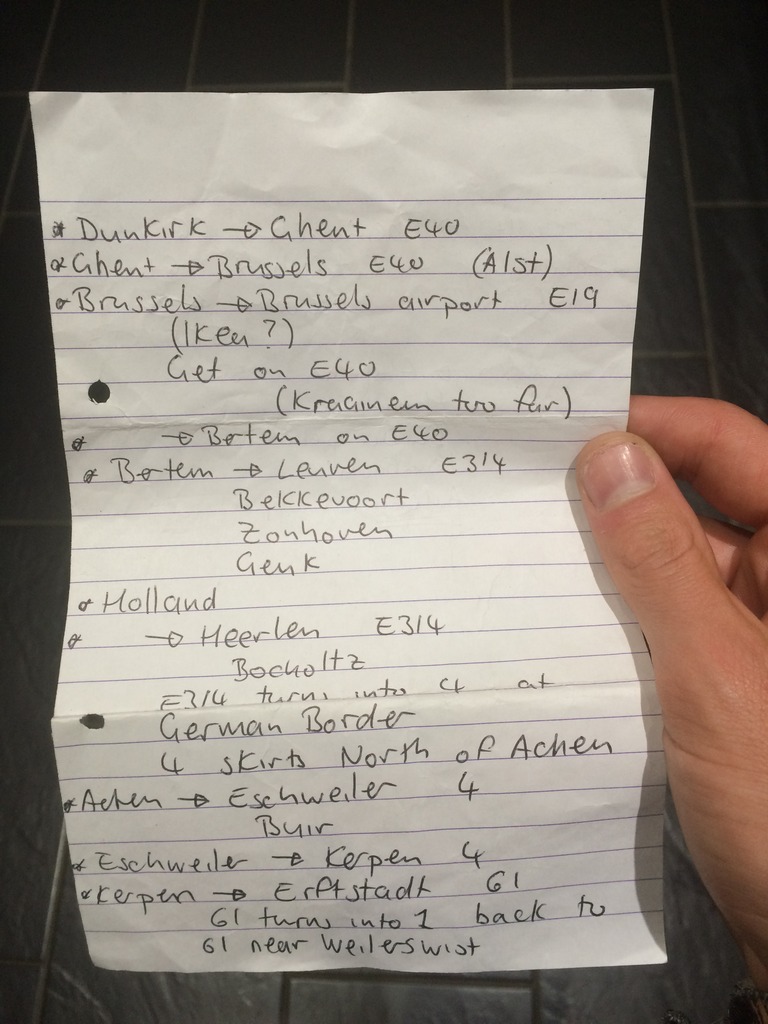 * Dunkirk → Ghent E40
* Ghent → Brussels E40 (Alst)
* Brussels → Brussels airport E19
(Ikea ?)
Get on E40
(Kraainem too far)
* → Bertem on E40
* Bertem → Leuven E314
Bekkevoort
Zonhoven
Genk
* Holland
* → Heerlen E314
Bocholtz
E314 turns into 4 at
German Border
4 skirts North of Achen
* Achen → Eschweiler 4
Buir
* Eschweiler → Kerpen 4
* Kerpen → Erftstadt 61
61 turns into 1 back to
61 near Weilerswist